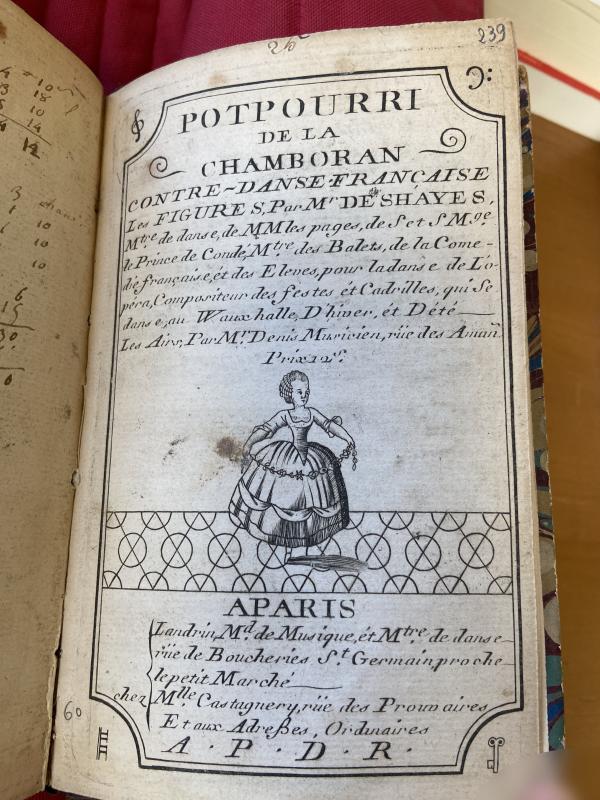 239
POTPOURRI
DE LA
CHAMBORAN
CONTRE-DANSE FRANÇAISE
Les FIGURES, Par Mr DE SHAYES,
Mtre de danse, de MM les pages, de S et S Mgr
le Prince de Condé, Mtre des Balets, de la Come-
die française, ét des Eleves, pour la danse de L'o-
péra, Compositeur des festes ét Cadrilles, qui Se
danse, au Wauxhalle, D'hiver, ét Dété
Les Airs, Par Mr Denis Musicien, rüe des Aman
Prix 12s.
APARIS
Landrin, Md de Musique, ét Mtre de danse
rüe de Boucheries St Germain proche
le petit Marché
chez Mlle Castagnery, rüe des Prouvaires
Et aux Adreßes, Ordinaires
A.P.D.R.
60